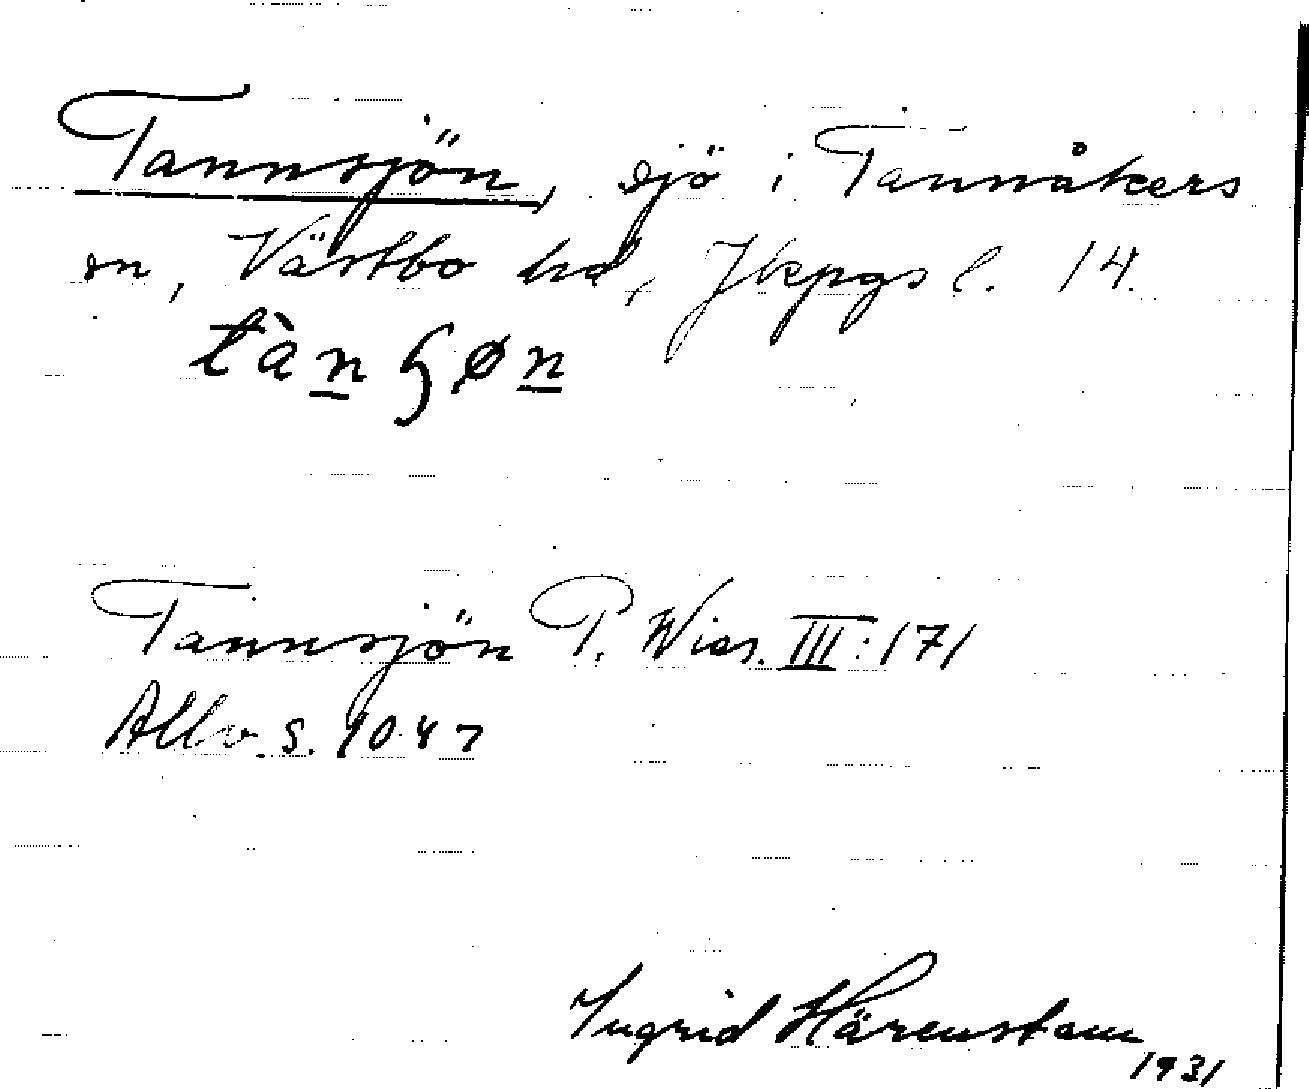 Tannsjön, sjö i Tannåkers
sn, Västbo hd, Jkpgs l. 14.
tàn ɧøn
Tannsjön P. Wies. III:171
Allvo s. 1047
Ingrid Härenstam
1931